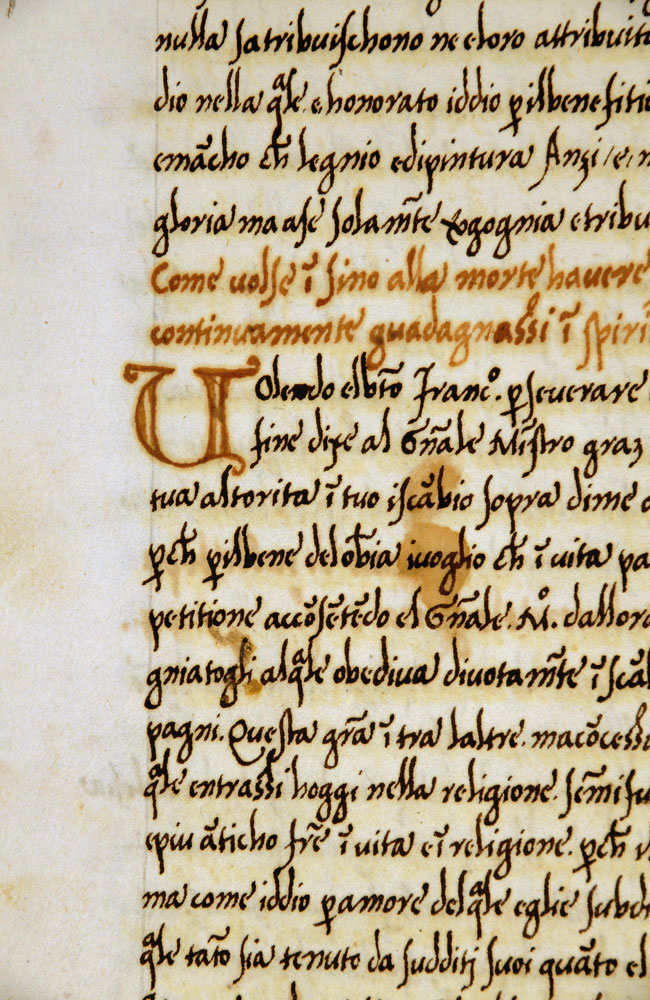 nulla satribuischono ne eloro attribuito
dio nella q̃le e honorato iddio p̱ ilbenefitio
emãcho ch̃ legnio edipintura Anzi /e/
gloria ma ase solam̃te v̱gognia etribu
Come volse ĩ sino alla morte havere
continuamente guadagnassi ĩ spiri
Volendo elbt̃o Franc.º p̱severare
fine dixe al Gñale Miñstro graz
tua altorita ĩ tuo iscãbio sopra dime
p̱ch̃ p̱ ilbene delobb̃ia ivoglio ch̃ ĩ vita pa
petitione accõsẽtẽdo el Gñale. Mº. dallora
gnia togli alq̃le obediva divotam̃te ĩ scãb
pagni. Questa grã ĩ tra laltre. macõcess
q̃le entrassi hoggi nella religione. sem̃i fu
epiu ãticho fr̃e ĩ vita e ĩ religione. p̱ch̃
ma come iddio p̱ amore delq̃le eglie subdi
q̃le tãto sia tenuto da sudditj suoi quãto el